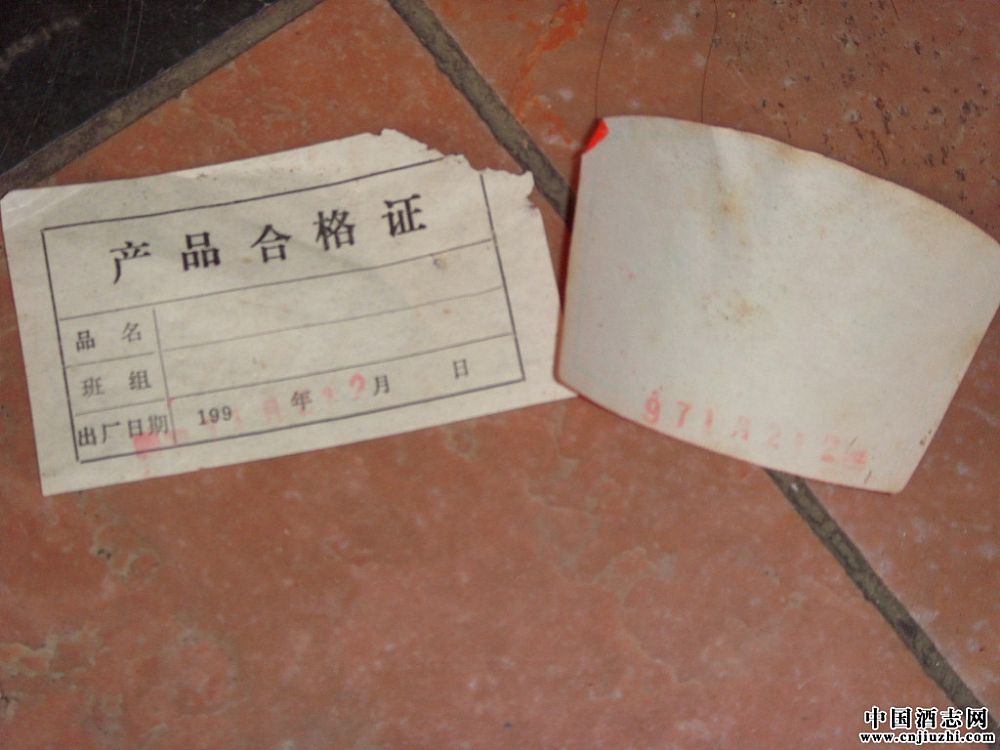 产品合格证
品名
班组
出厂日期 199 年 月 日
971月2
中国酒志网
www.cnjiuzhi.com